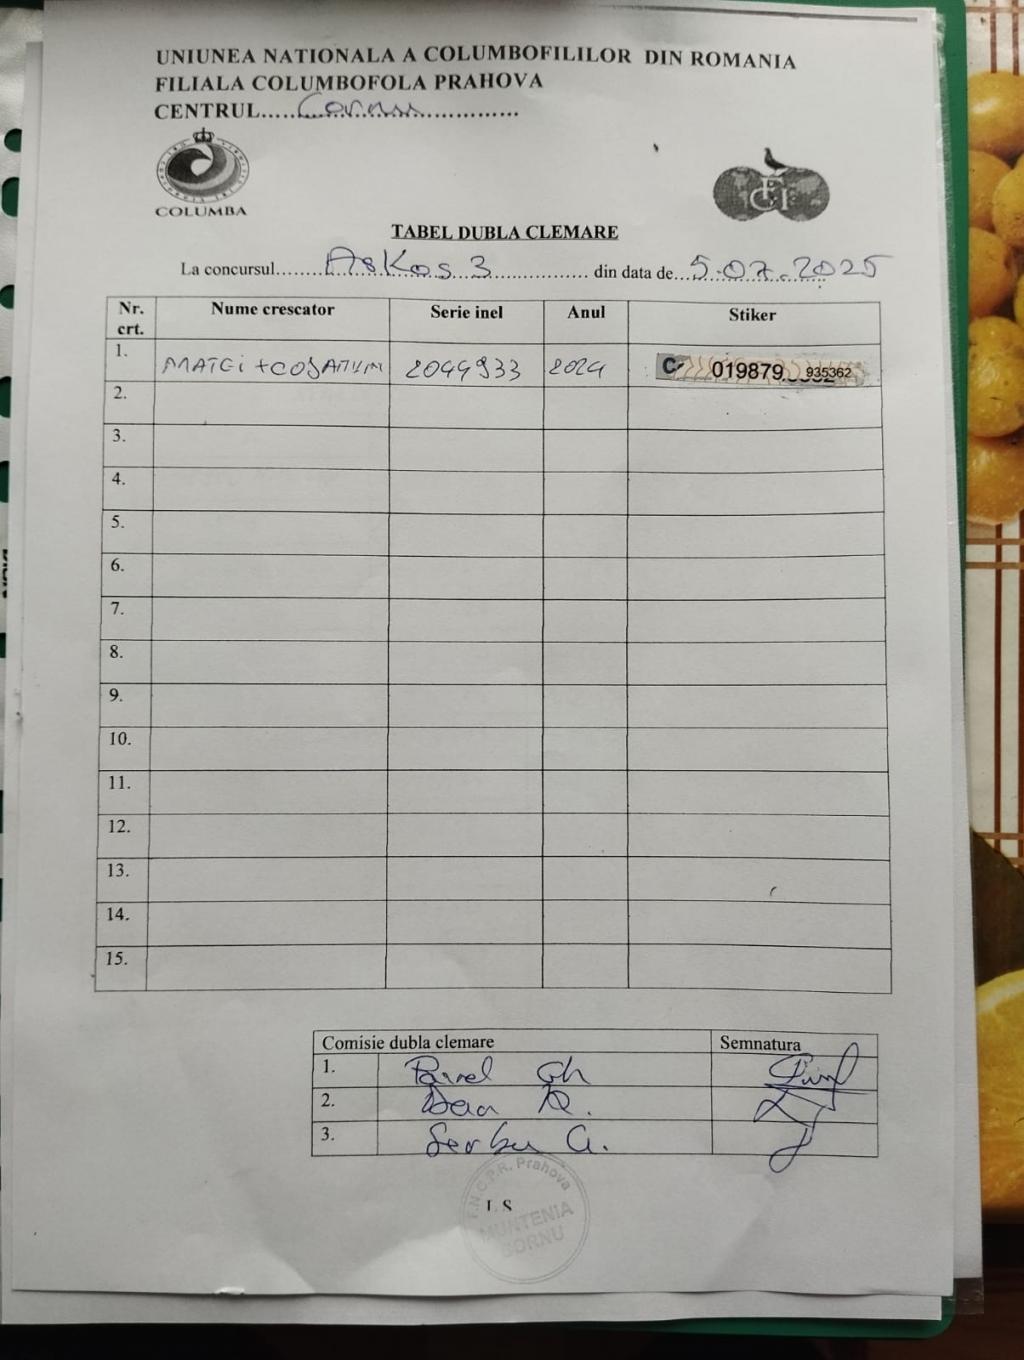 UNIUNEA NATIONALA A COLUMBOFILILOR DIN ROMANIA
FILIALA COLUMBOFOLA PRAHOVA
CENTRUL..... Cornu ..................
COLUMBA
FCI
TABEL DUBLA CLEMARE
La concursul........ Askos 3 ................ din data de... 5.07.2025
Nr. crt. Nume crescator Serie inel Anul Stiker
1. MATEI + COSATIUM 2044933 2024 C 019879 935362
2.
3.
4.
5.
6.
7.
8.
9.
10.
11.
12.
13.
14.
15.
Comisie dubla clemare Semnatura
1. Pavel Gh
2. Dan D.
3. Serbu G.
L S
F.N.C.P.R. Prahova
MUNTENIA
CORNU